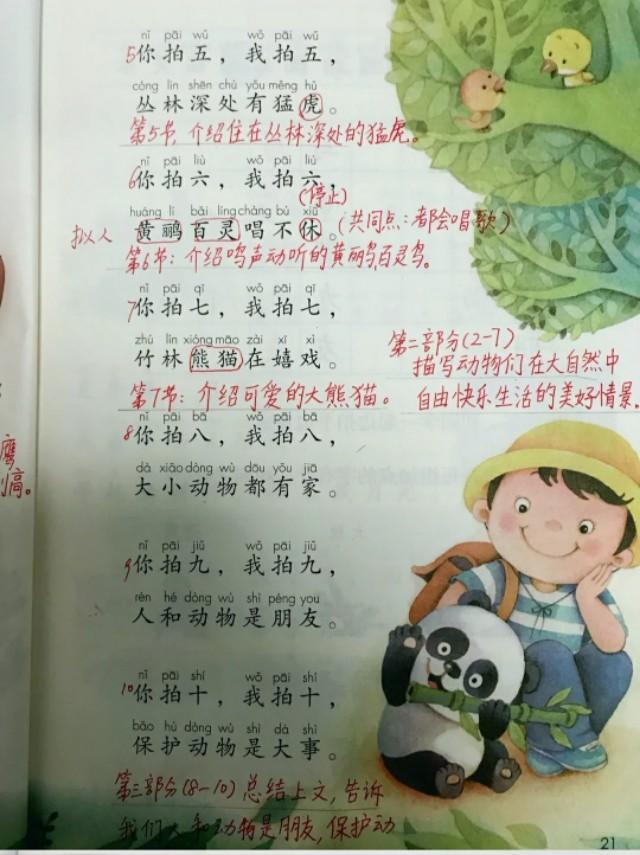 nǐ pāi wǔ wǒ pāi wǔ
5你拍五，我拍五，
cóng lín shēn chù yǒu měng hǔ
丛林深处有猛虎。
第5节，介绍住在丛林深处的猛虎。
nǐ pāi liù wǒ pāi liù
6你拍六，我拍六，
(停止)
huáng lí bǎi líng chàng bù xiū
拟人 黄鹂百灵唱不休。(共同点：都会唱歌)
第6节：介绍鸣声动听的黄丽鸟百灵鸟。
nǐ pāi qī wǒ pāi qī
7你拍七，我拍七，
zhú lín xióng māo zài xī xì
竹林熊猫在嬉戏。
第二部分(2-7)
描写动物们在大自然中
自由快乐生活的美好情景.
第7节：介绍可爱的大熊猫。
nǐ pāi bā wǒ pāi bā
8你拍八，我拍八，
dà xiǎo dòng wù dōu yǒu jiā
大小动物都有家。
鹰
高。
nǐ pāi jiǔ wǒ pāi jiǔ
9你拍九，我拍九，
rén hé dòng wù shì péng you
人和动物是朋友。
nǐ pāi shí wǒ pāi shí
10你拍十，我拍十，
bǎo hù dòng wù shì dà shì
保护动物是大事。
第三部分(8-10)总结上文,告诉
我们人和动物是朋友,保护动
21